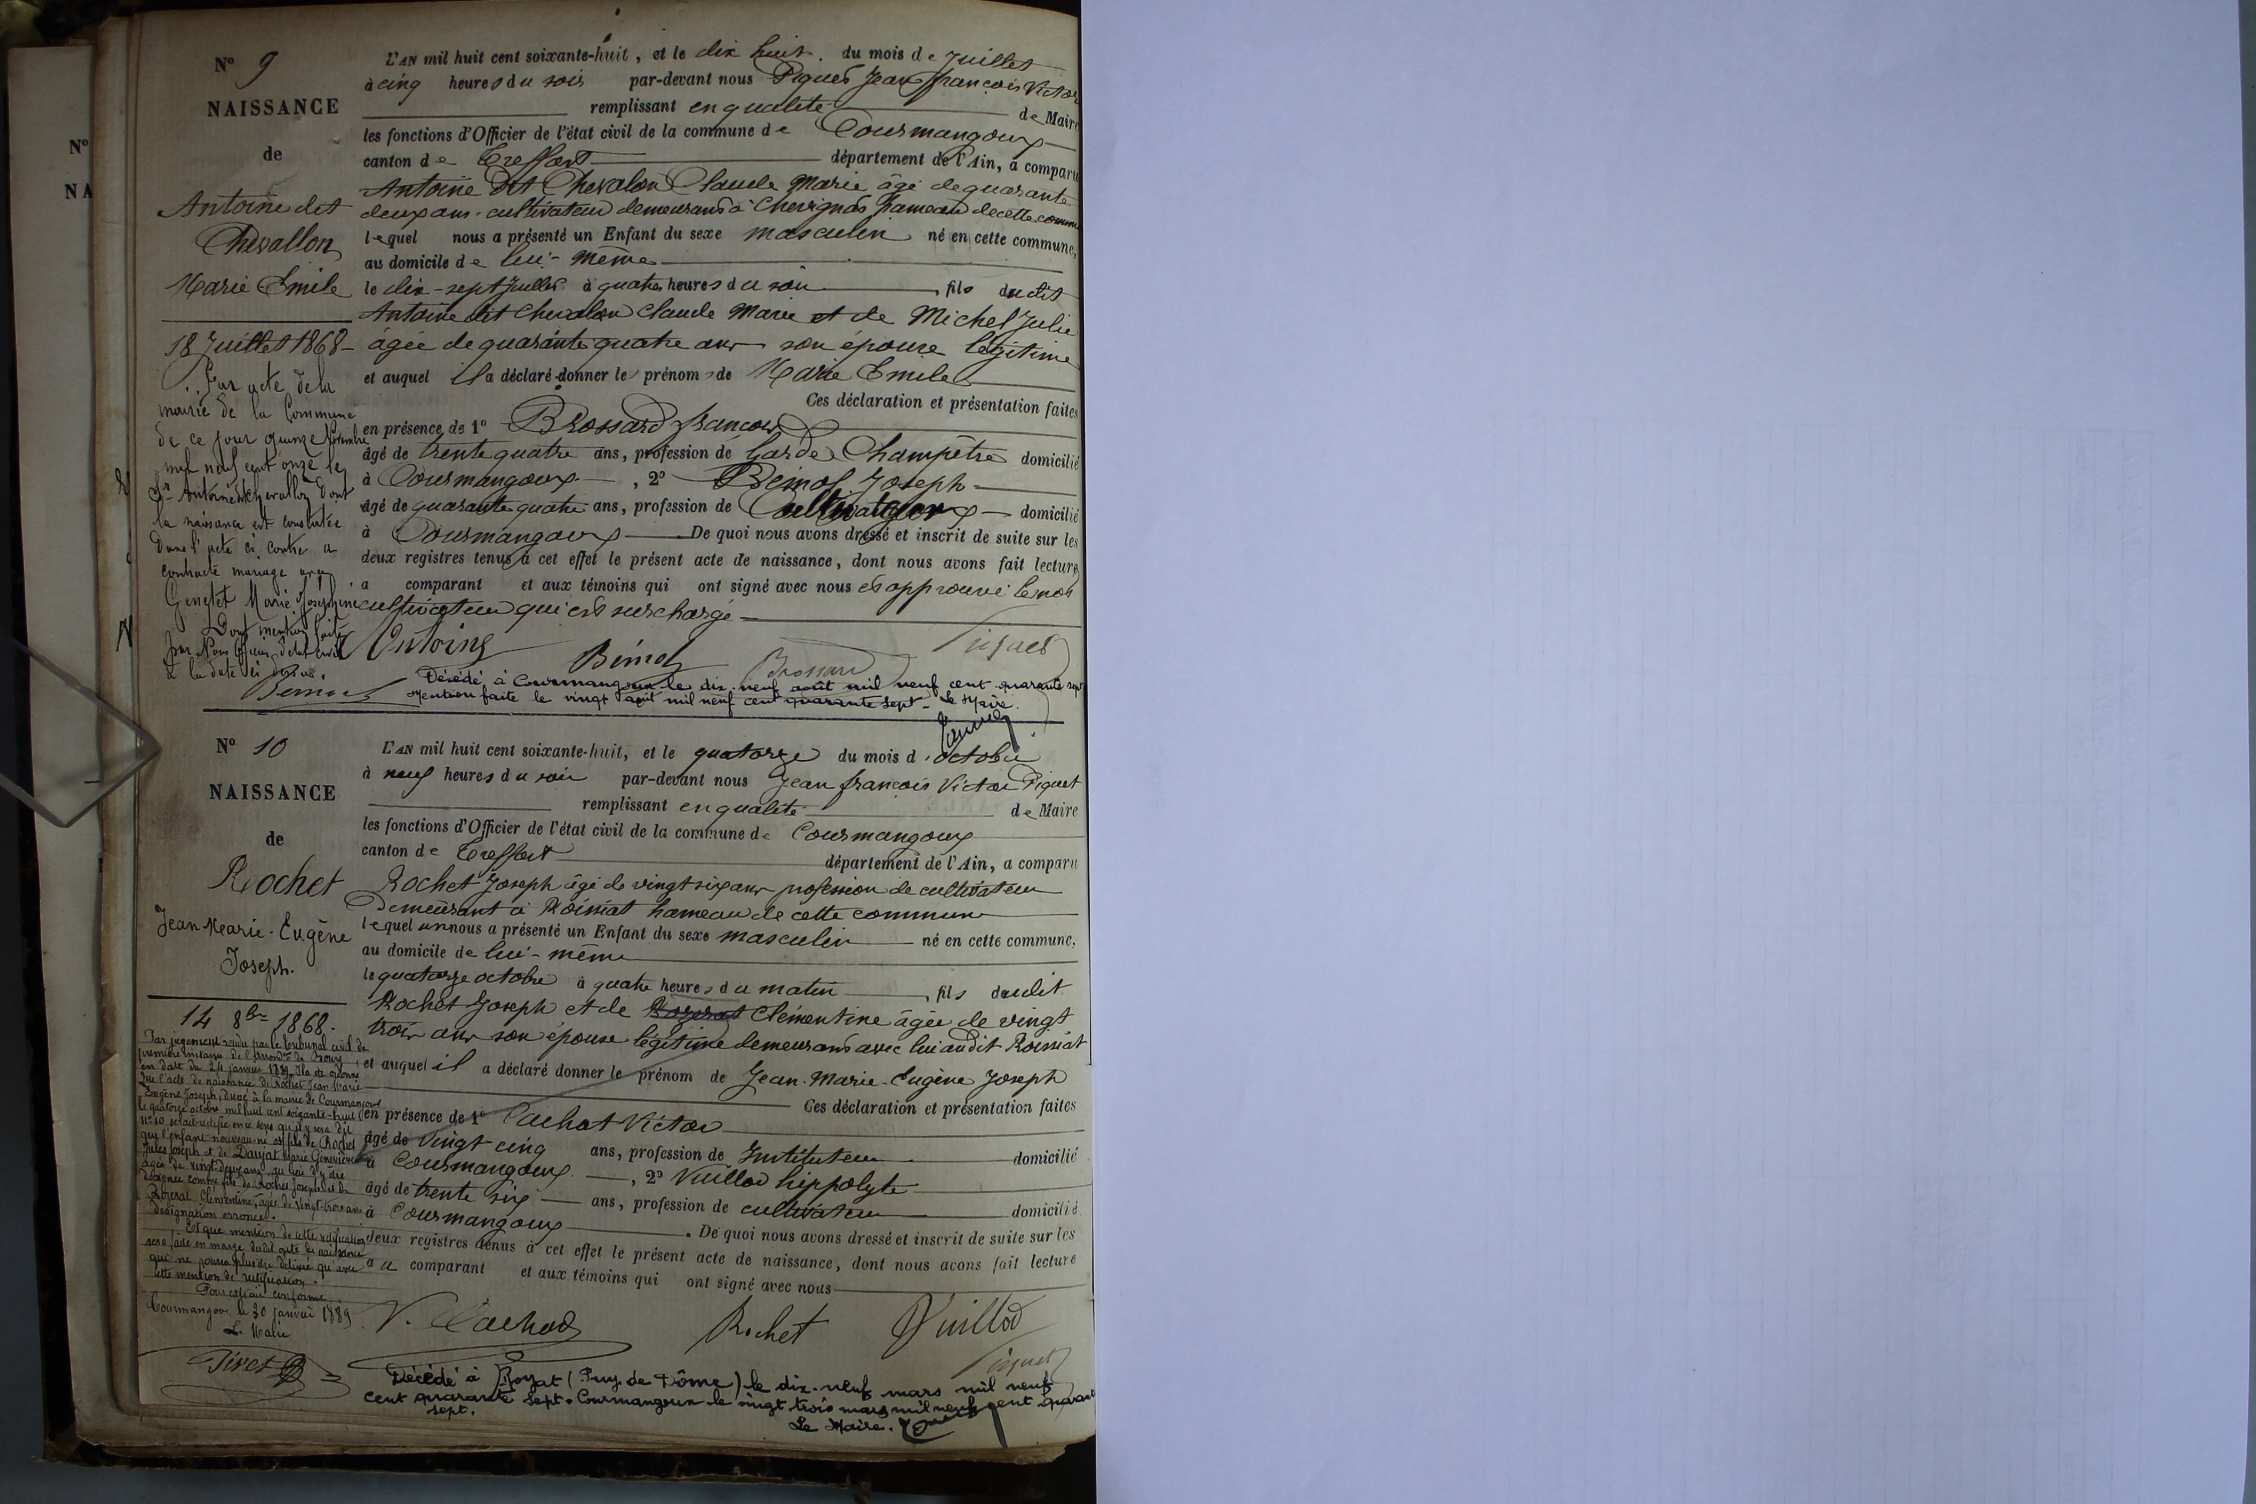 N°
NA
N° 9
NAISSANCE
de
Antoine dit
Chevallon
Marie Emile
18 Juillet 1868
Par acte de la
mairie de la Commune
de ce jour quinze Novembre
mil neuf cent onze le
Sr Antoine dit Chevallon dont
la naissance est constatée
dans l'acte ci contre a
contracté mariage avec
Genelet Marie Josephine
Dont mention faite
par Nous Officier d'état civil
à la date ci dessus.
L'AN mil huit cent soixante-huit, et le dix huit du mois de Juillet
à cinq heures du soir par-devant nous Piquet Jean françois Victor
remplissant en qualité de Maire
les fonctions d'Officier de l'état civil de la commune de Courmangoux
canton de Treffort département de l'Ain, a comparu
Antoine dit Chevalon Claude Marie âgé de quarante
deux ans cultivateur demeurant à Chevignat hameau de cette commune
lequel nous a présenté un Enfant du sexe masculin né en cette commune,
au domicile de lui-même
le dix-sept Juillet à quatre heures du soir, fils dudit
Antoine dit Chevalon Claude Marie et de Michel Julie
âgée de quarante quatre ans son épouse légitime
et auquel il a déclaré donner les prénoms de Marie Emile
Ces déclaration et présentation faites
en présence de 1° Brossard françois
âgé de trente quatre ans, profession de Garde Champêtre domicilié
à Courmangoux, 2° Bémol Joseph
âgé de quarante quatre ans, profession de Cultivateur domicilié
à Courmangoux De quoi nous avons dressé et inscrit de suite sur les
deux registres tenus à cet effet le présent acte de naissance, dont nous avons fait lecture
a comparant et aux témoins qui ont signé avec nous et approuvé le mot
cultivateur qui est surchargé
Antoine Bémol Brossard Piquet
Décédé à Courmangoux le dix-neuf août mil neuf cent quarante sept
Mention faite le vingt août mil neuf cent quarante sept - Le Maire.
N° 10
NAISSANCE
de
Rochet
Jean Marie-Eugène
Joseph.
14 8bre 1868.
Par jugement rendu par le tribunal civil de
première instance de l'arrondt de Bourg
en date du 24 janvier 1889, Il a été ordonné
que l'acte de naissance de Rochet Jean Marie
Eugène Joseph, dressé à la mairie de Courmangoux
le quatorze octobre mil huit cent soixante-huit
n° 10 serait rectifié en ce sens qu'il y sera dit
que l'enfant nouveau-né est fils de Rochet
Jules Joseph et de Daujat Marie Geneviève
âgée de vingt-deux ans au lieu d'y être
désigné comme fils de Rochet Joseph et de
Rozerat Clémentine, âgée de vingt-trois ans
désignation erronée.
Et que mention de cette rectification
sera faite en marge dudit acte de naissance
qui ne pourra plus être délivré qu'avec
cette mention de rectification.
Pour extrait conforme
Courmangoux le 30 janvier 1889
Le Maire
Piret
L'AN mil huit cent soixante-huit, et le quatorze du mois d'octobre
à neuf heures du soir par-devant nous Jean françois Victor Piquet
remplissant en qualité de Maire
les fonctions d'Officier de l'état civil de la commune de Courmangoux
canton de Treffort département de l'Ain, a comparu
Rochet Joseph âgé de vingt six ans profession de cultivateur
demeurant à Roissiat hameau de cette commune
lequel nous a présenté un Enfant du sexe masculin né en cette commune,
au domicile de lui-même
le quatorze octobre à quatre heures du matin, fils dudit
Rochet Joseph et de Rozerat Clémentine âgée de vingt
trois ans son épouse légitime demeurant avec lui audit Roissiat
et auquel il a déclaré donner le prénom de Jean-Marie-Eugène Joseph
Ces déclaration et présentation faites
en présence de 1° Cachot Victor
âgé de vingt cinq ans, profession de Instituteur domicilié
à Courmangoux, 2° Vuillod hippolyte
âgé de trente six ans, profession de cultivateur domicilié
à Courmangoux. De quoi nous avons dressé et inscrit de suite sur les
deux registres tenus à cet effet le présent acte de naissance, dont nous avons fait lecture
au comparant et aux témoins qui ont signé avec nous
V. Cachod Rochet Vuillod
Piquet
Décédé à Royat (Puy de Dôme) le dix-neuf mars mil neuf
cent quarante sept. Courmangoux le vingt trois mars mil neuf cent quarante
sept.
Le Maire.